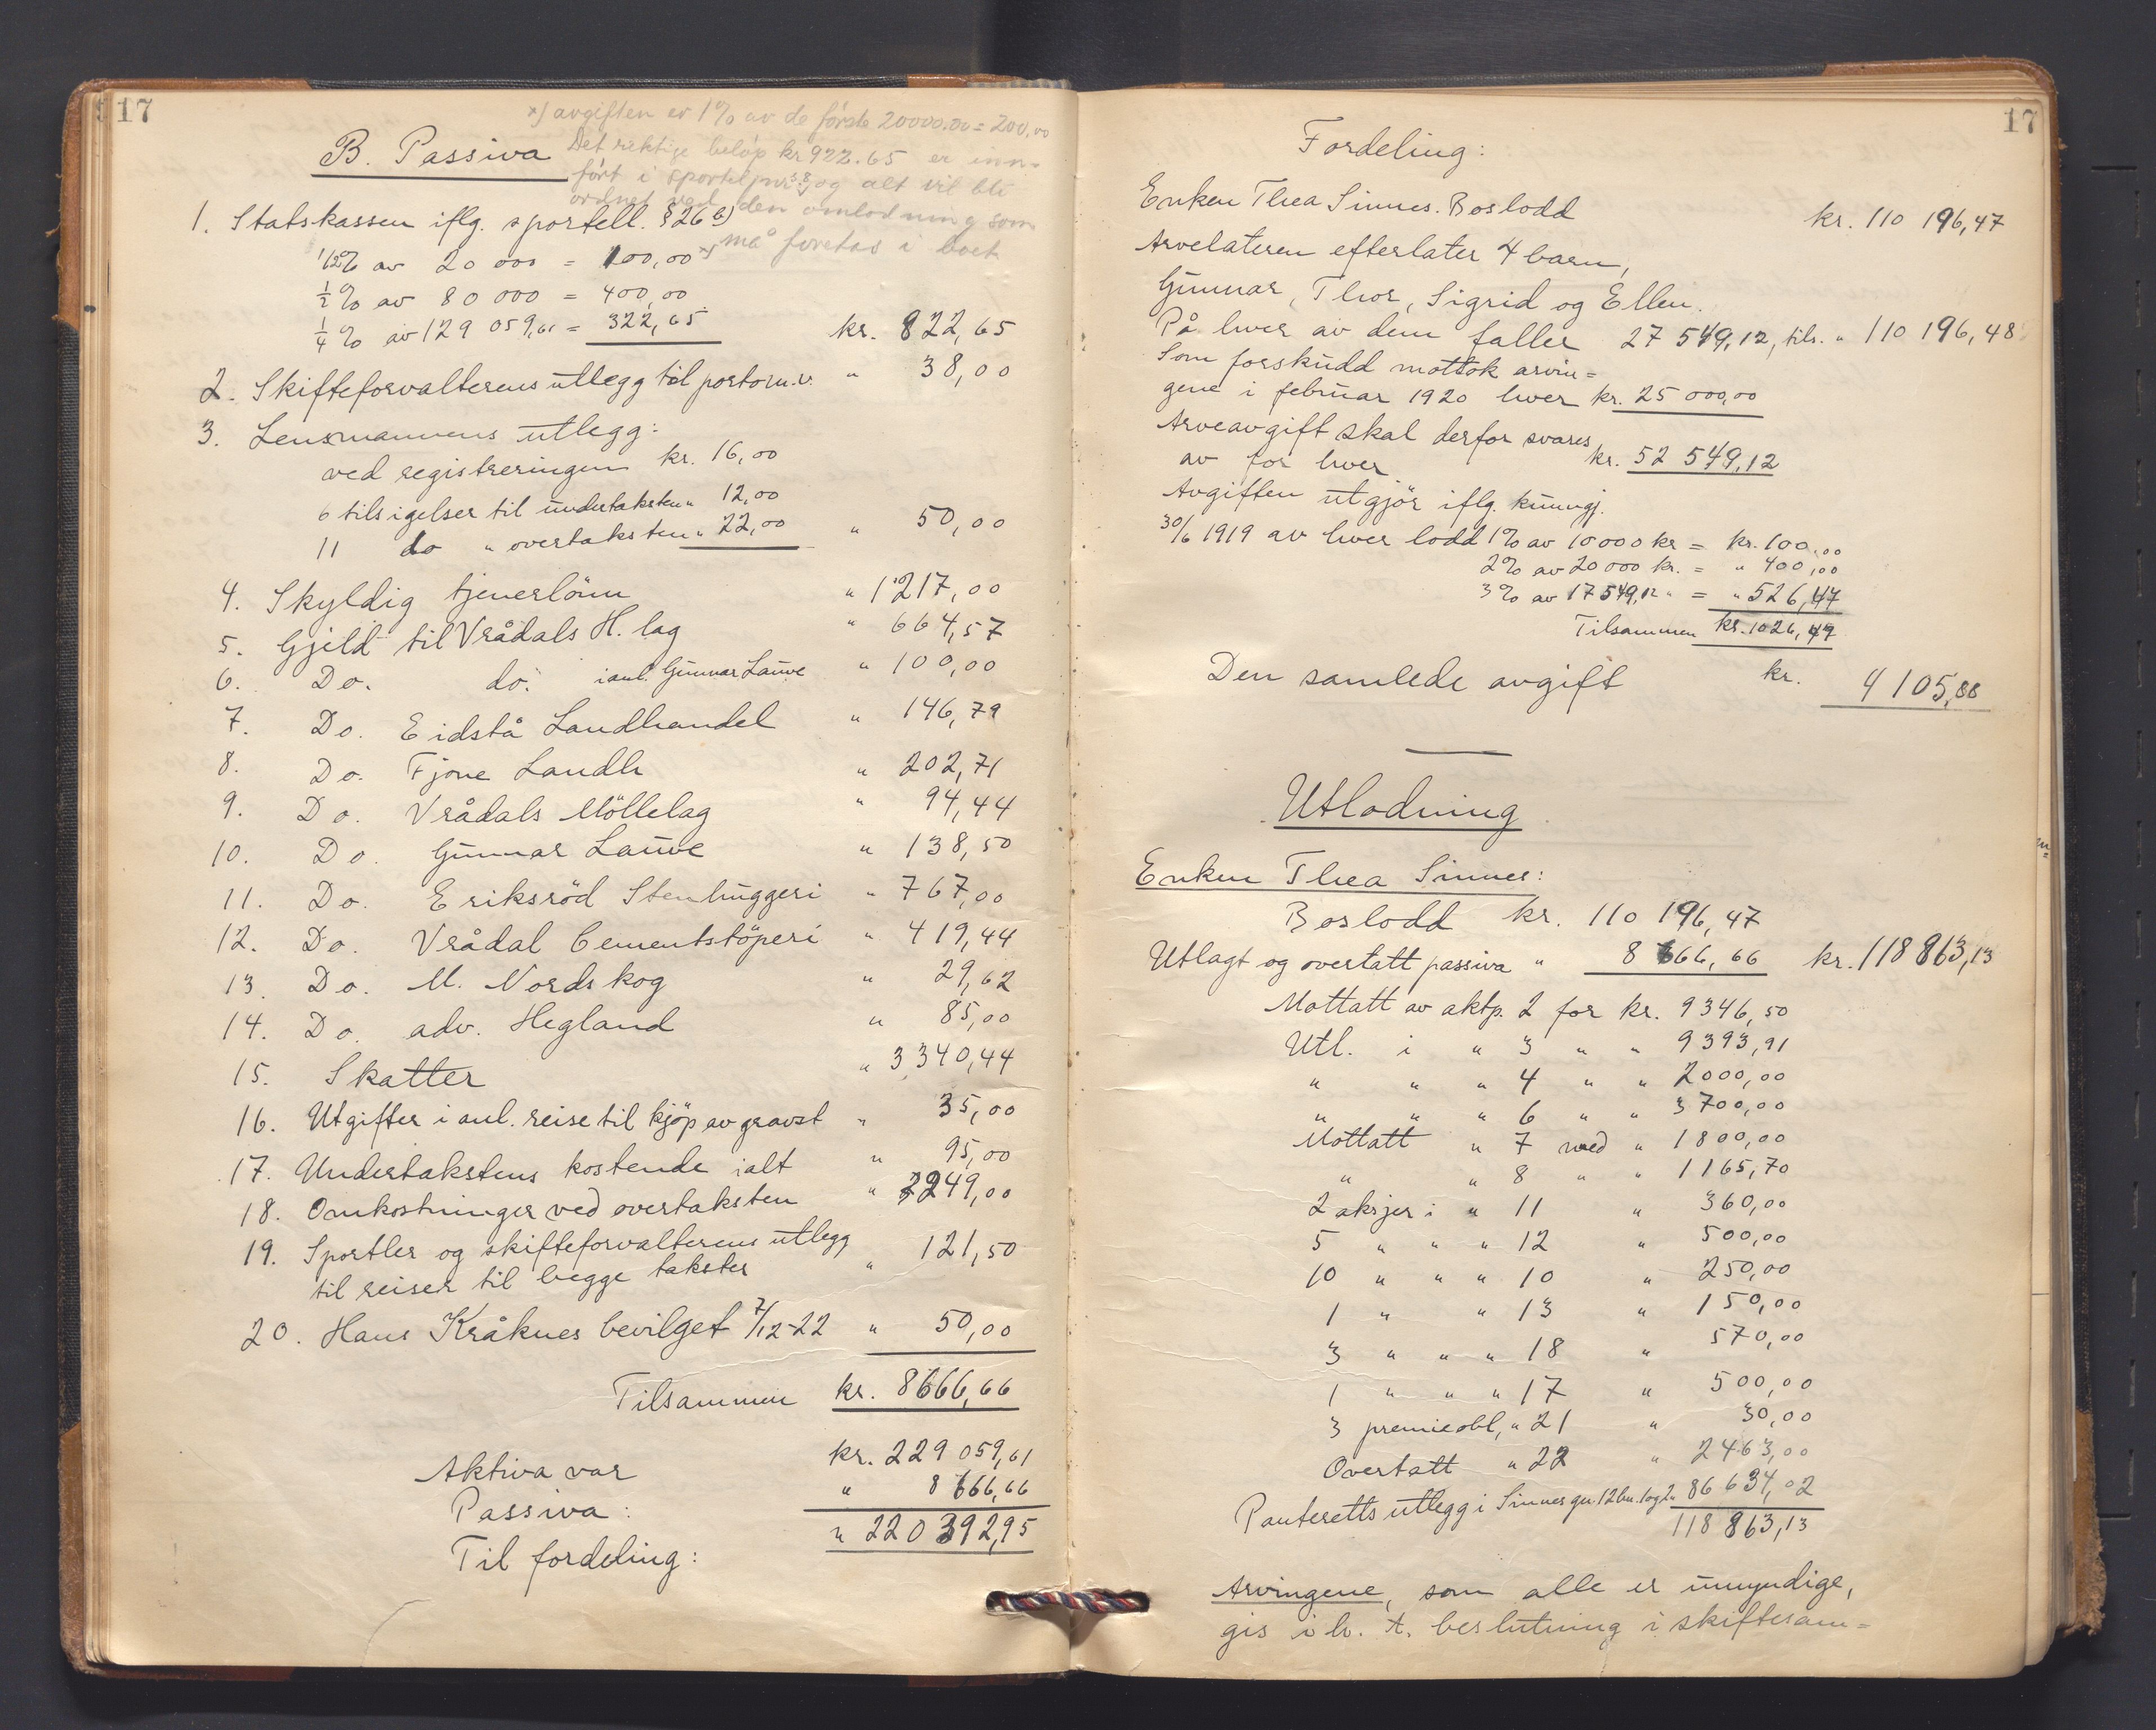 17
x) avgiften er 1% av de første 20000.00 = 200,00
Det rektige beløp kr 922.65 er inn-
ført i sportelpr. s. 8 og alt vil bli
ordnet ved den omlodning som
må foretas i boet
B. Passiva
1. Statskassen iflg. sportell. § 26 b)
1/2% av 20 000 = 100,00 x)
1/2% av 80 000 = 400,00
1/4% av 129 059,61 = 322,65 kr. 822,65
2. Skifteforvalterens utlegg til porto m.v. " 38,00
3. Lensmannens utlegg:
ved registreringen kr. 16,00
6 tilsigelser til undertaksten " 12,00
11 do " overtaksten " 22,00 " 50,00
4. Skyldig tjenerlönn " 1217,00
5. Gjeld til Vrådals H. lag " 664,57
6. Do. do. i anl. Gunnar Lauve " 100,00
7. Do. Eidstå Landhandel " 146,79
8. Do. Fjone Landh " 202,71
9. Do. Vrådals Möllelag " 94,44
10. Do. Gunnar Lauve " 138,50
11. Do. Eriksröd Stenhuggeri " 767,00
12. Do. Vrådal Cementstöperi " 419,44
13. Do. M. Nordskog " 29,62
14. Do. adv. Hegland " 85,00
15. Skatter " 3340,44
16. Utgifter i anl. reise til kjöp av gravst " 35,00
17. Undertakstens kostende ialt " 95,00
18. Omkostninger ved overtaksten " 249,00
19. Sportler og skifteforvalterens utlegg
til reiser til begge takster " 121,50
20. Hans Kråknes bevilget 7/12-22 " 50,00
Tilsammen kr. 8666,66
Aktiva var kr. 229 059,61
Passiva: " 8 666,66
Til fordeling: " 220 392,95
17
Fordeling:
Enken Thea Sinnes. Boslodd kr. 110 196,47
Arvelateren efterlater 4 barn,
Gunnar, Thor, Sigrid og Ellen.
På hver av dem faller 27 549,12, tils. " 110 196,48
Som forskudd mottok arvin-
gene i februar 1920 hver kr. 25 000,00
Arveavgift skal derfor svares
av for hver kr. 52 549,12
Avgiften utgjör iflg. kunngj.
30/6 1919 av hver lodd 1% av 10000 kr = kr. 100,00
2% av 20 000 kr. = " 400,00
3% av 17 549,12 " = " 526,47
Tilsammen kr. 1026,47
Den samlede avgift kr. 4 105,88
Utlodning
Enken Thea Sinnes:
Boslodd kr. 110 196,47
Utlagt og overtatt passiva " 8 666,66 kr. 118 863,13
Mottatt av aktp. 2 for kr. 9346,50
Utl. i " 3 " " 9393,91
" " " 4 " " 2000,00
" " " 6 " " 3700,00
Mottatt " 7 med " 1800,00
" " 8 " " 1165,70
2 aksjer i " 11 " 360,00
5 " " " 12 " 500,00
10 " " " 10 " 250,00
1 " " 13 " 150,00
3 " " " 18 " 570,00
1 " " " 17 " 500,00
3 premieobl, " 21 " 30,00
Overtatt " 22 " 2463,00
Panteretts utlegg i Sinnes gn. 12 bn. 1 og 2 " 86 634,02
118 863,13
Arvingene, som alle er umyndige,
gis i h. t. beslutning i skiftesam-